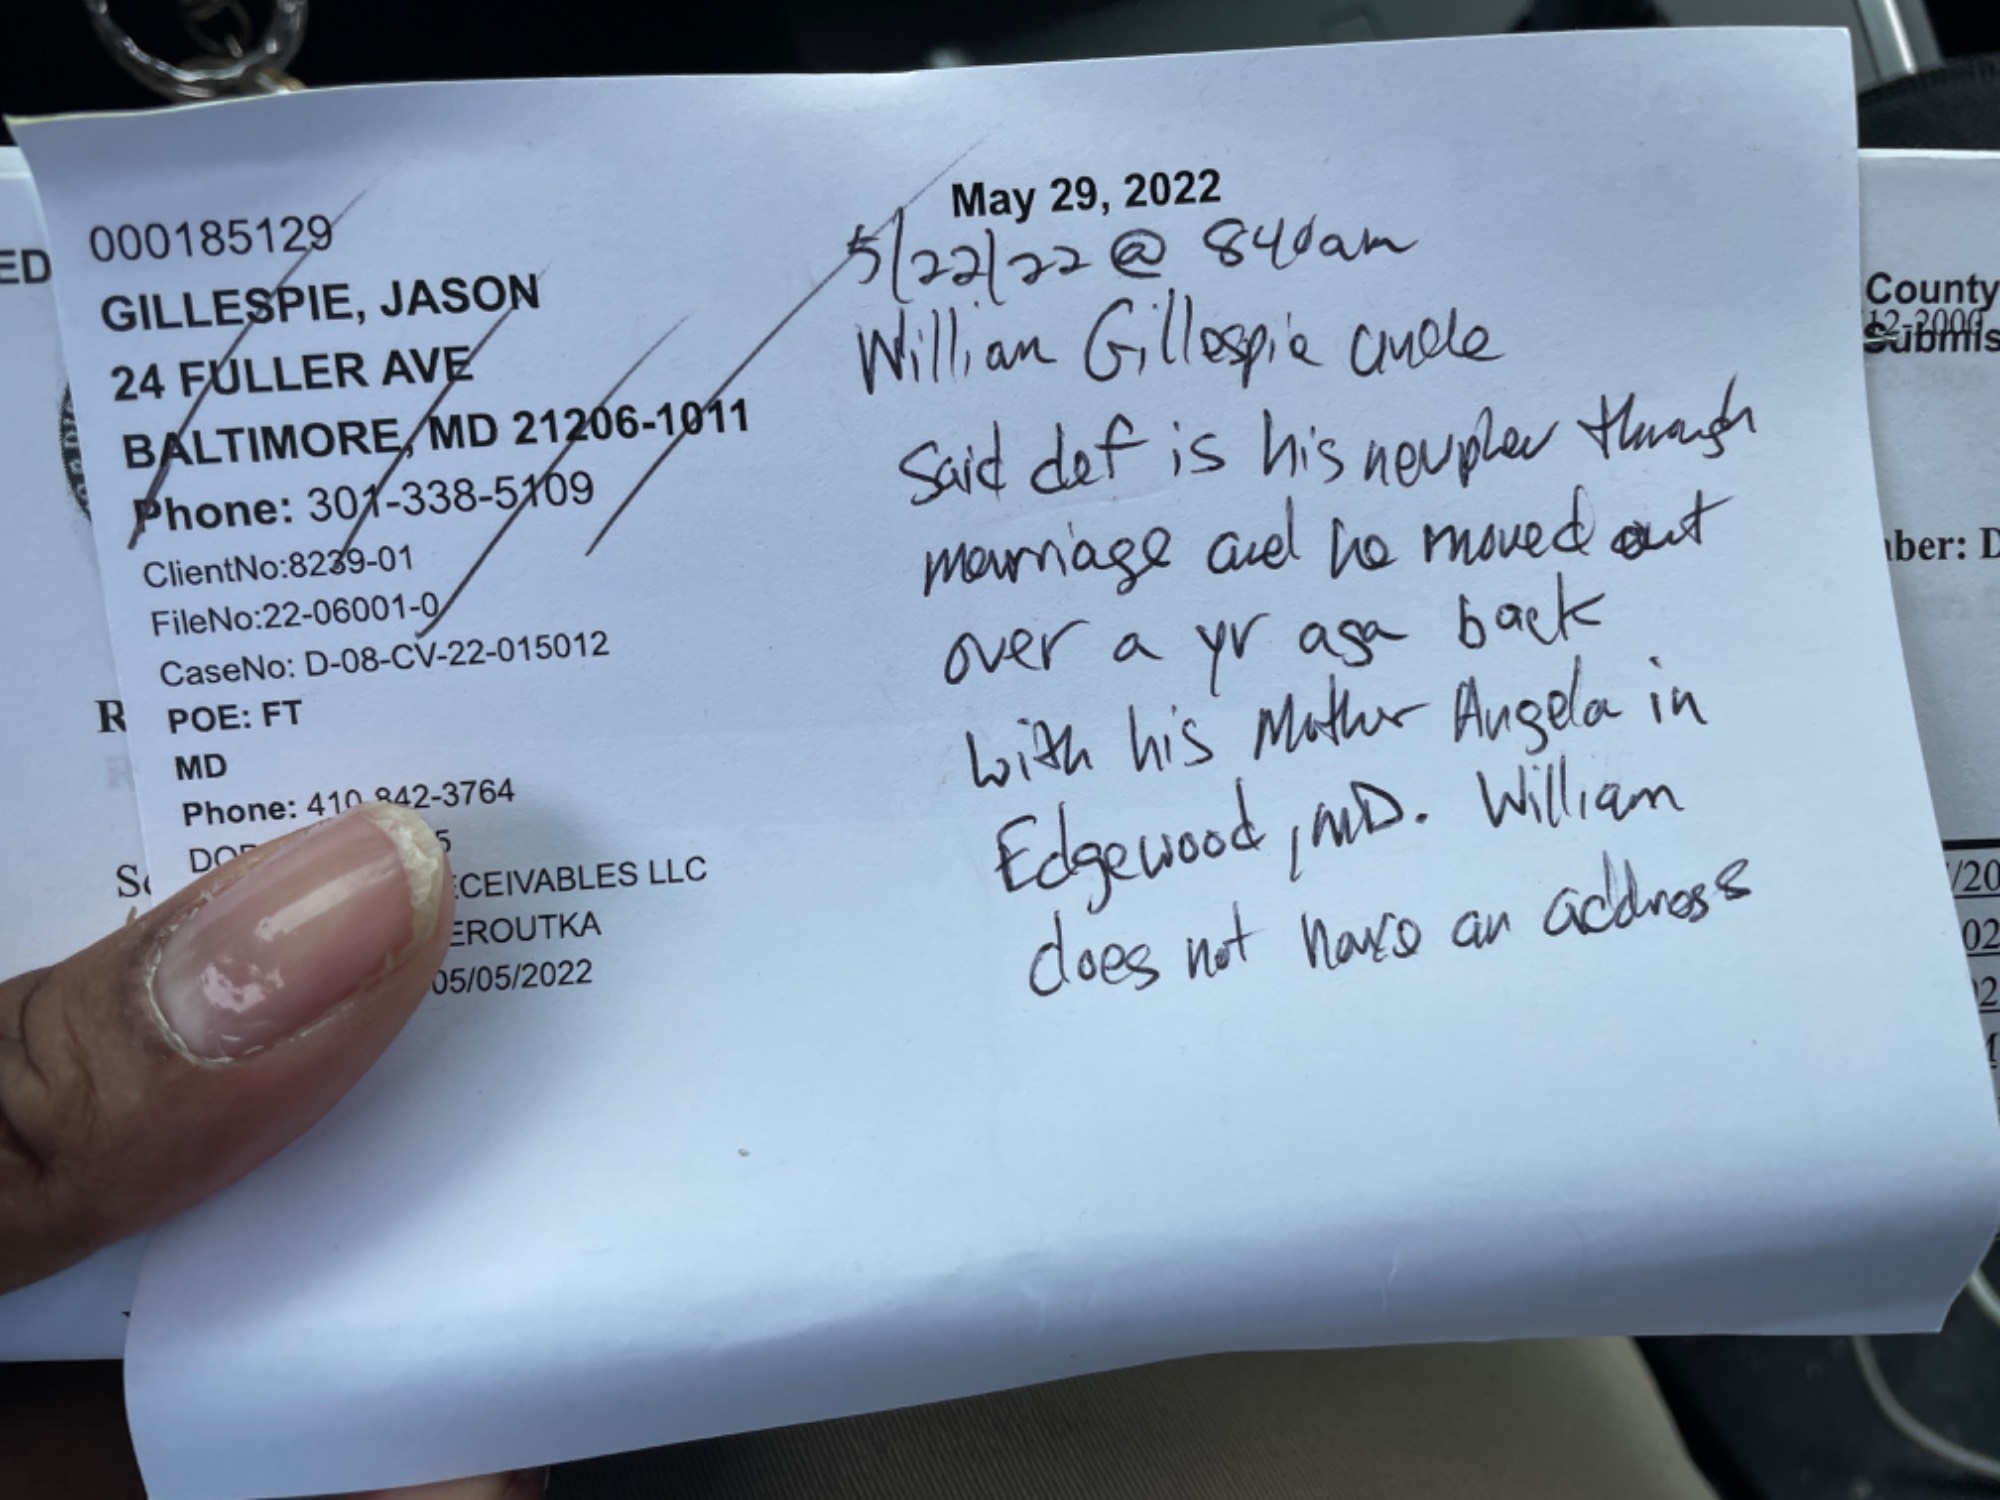 000185129
GILLESPIE, JASON
24 FULLER AVE
BALTIMORE, MD 21206-1011
Phone: 301-338-5109
ClientNo:8239-01
FileNo:22-06001-0
CaseNo: D-08-CV-22-015012
POE: FT
MD
Phone: 410-842-3764
DOB 5
CEIVABLES LLC
EROUTKA
05/05/2022
May 29, 2022
5/22/22 @ 840am
William Gillespie uncle
Said def is his neupher through
marriage and he moved out
over a yr ago back
with his Mother Angela in
Edgewood, MD. William
does not have an address
ED
R
County
12-2000
Submis
ber: D
/20
02